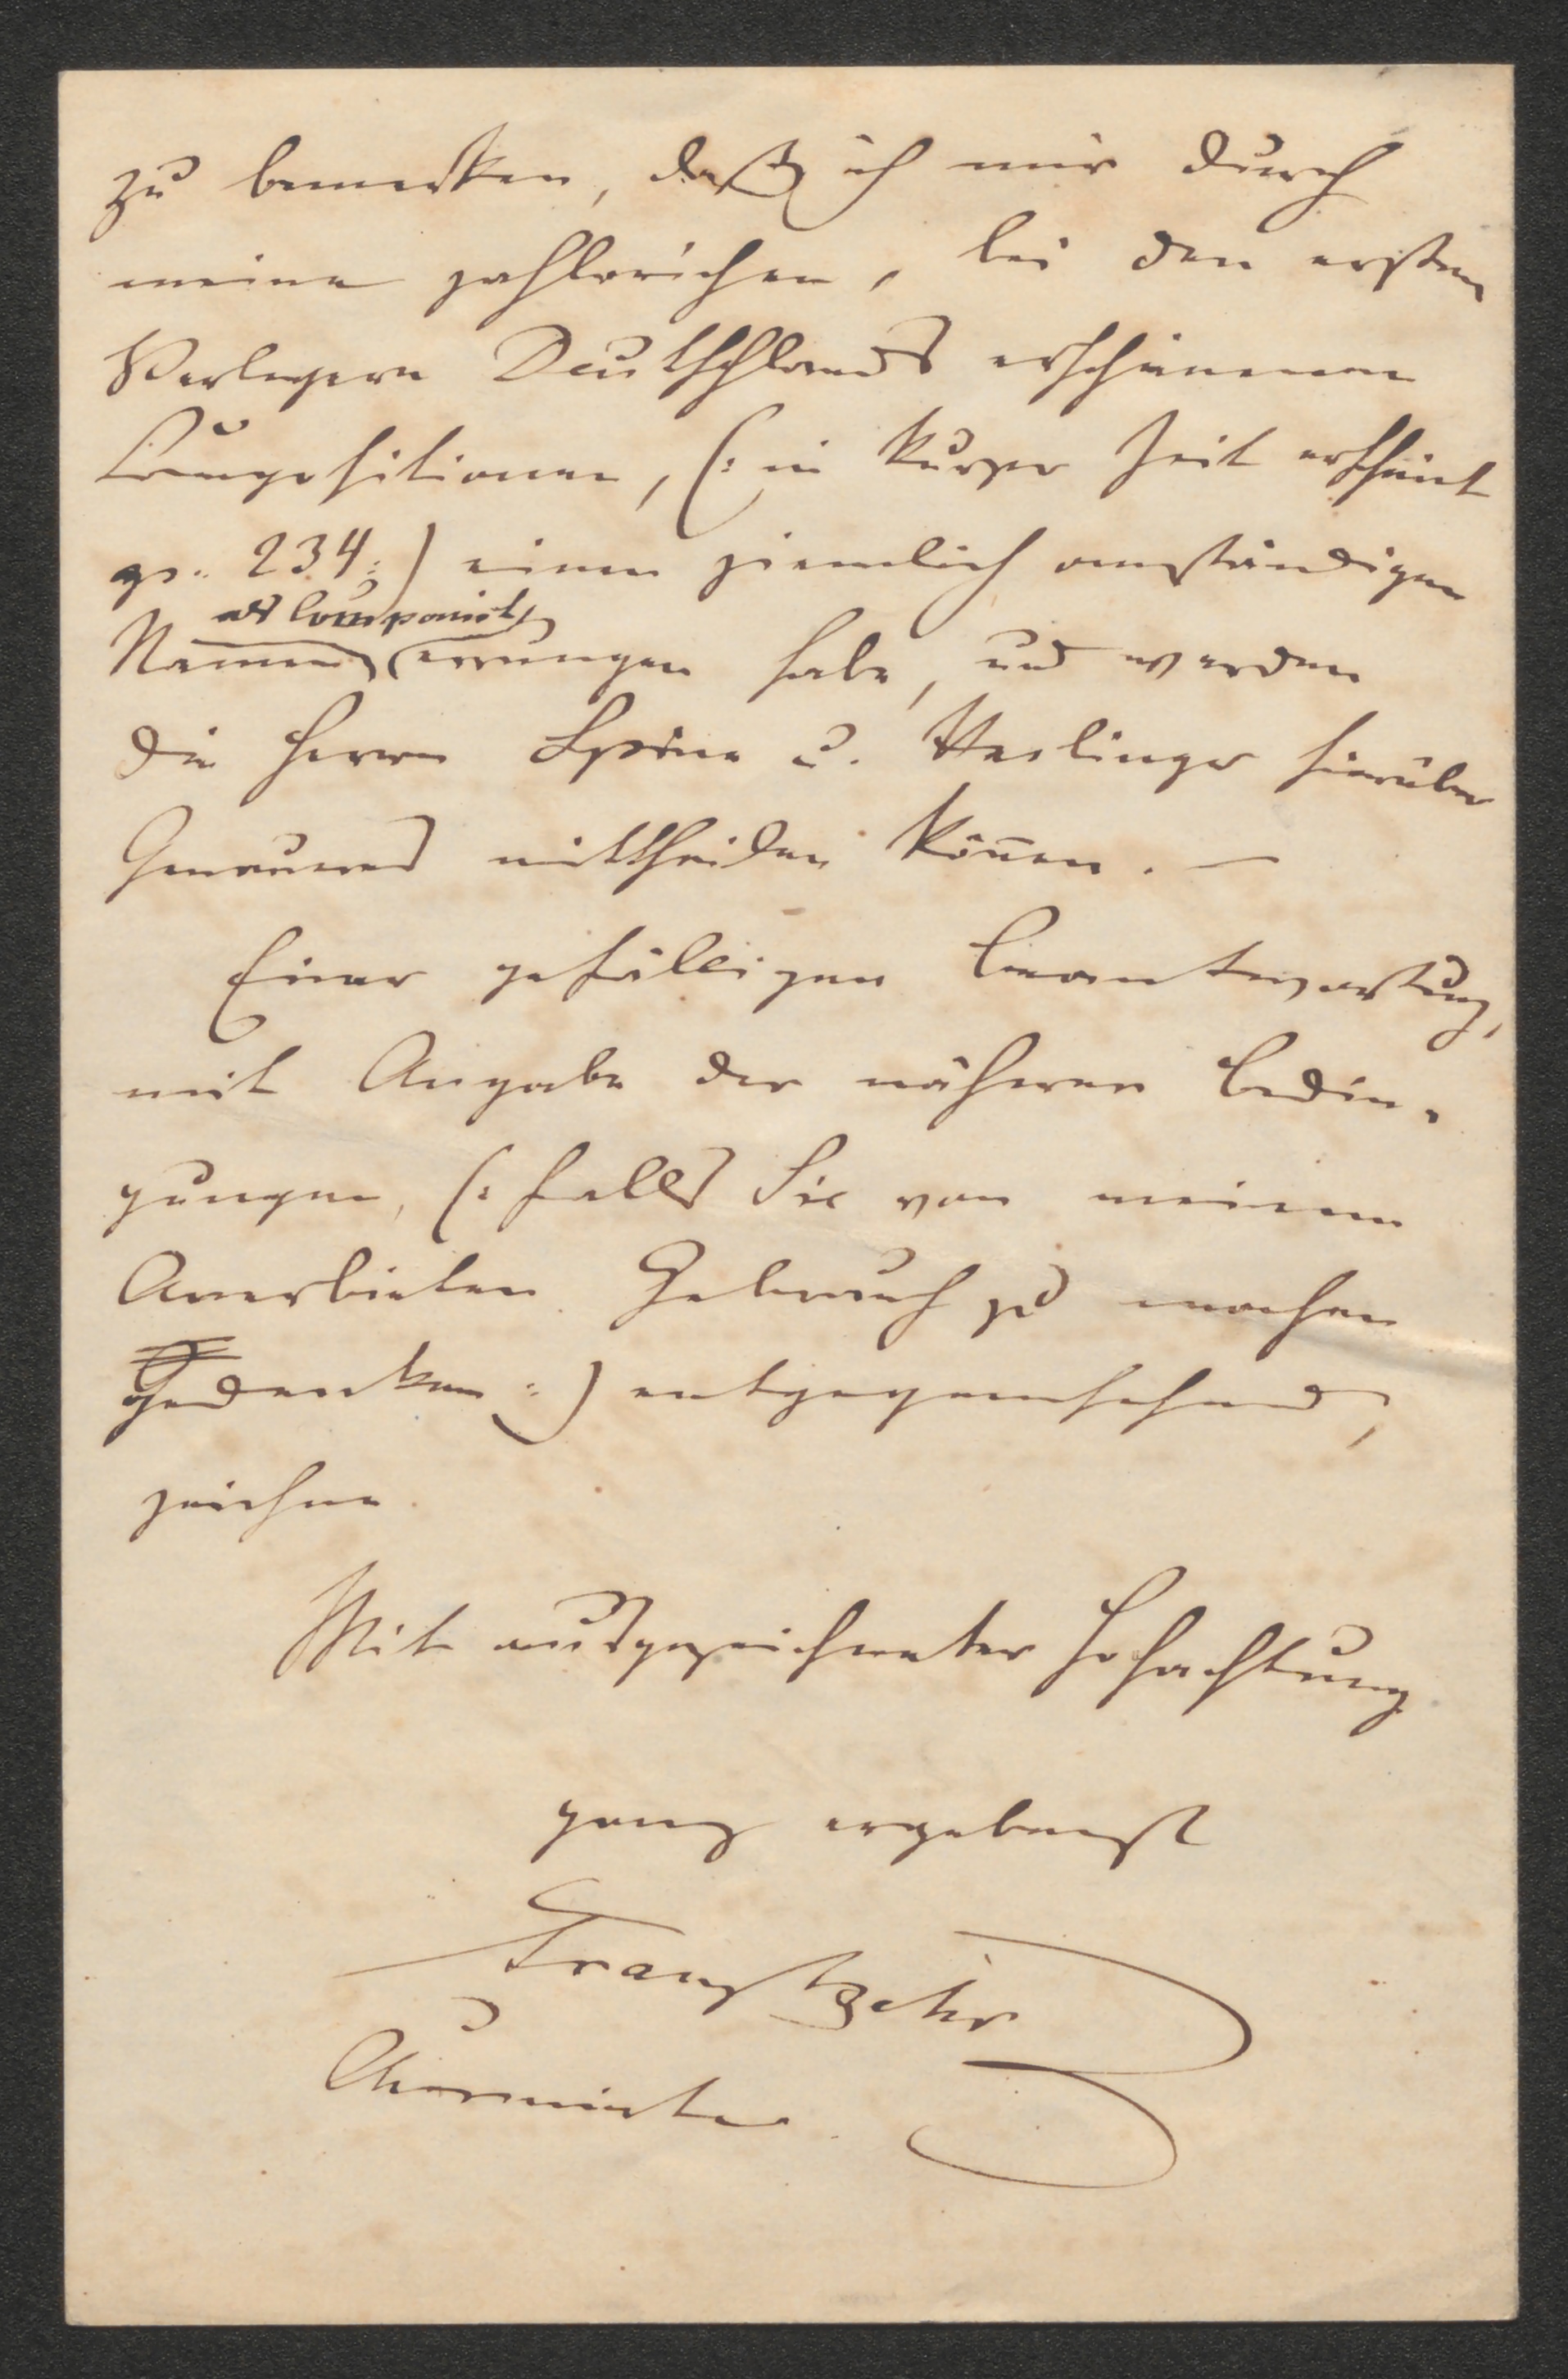 zu bemerken, daß ich mir durch
meine zahlreichen, bei den ersten
Verlegern Deutschlands erschienenen
Compositionen, (: in kurzer Zeit erscheint
op. 234 :) einen ziemlich anständigen
als Componist
Namen errungen habe, und werden
die Herren Spina u. Haslinger hierüber
Genaueres mittheilen können. —
Einer gefälligen Beantwortung,
mit Angabe der näheren Bedin-
gungen, (: falls Sie von meinem
Anerbieten Gebrauch zu machen
gedenken :) entgegensehend,
zeichne
Mit ausgezeichneter Hochachtung
ganz ergebenst
Franz Behr